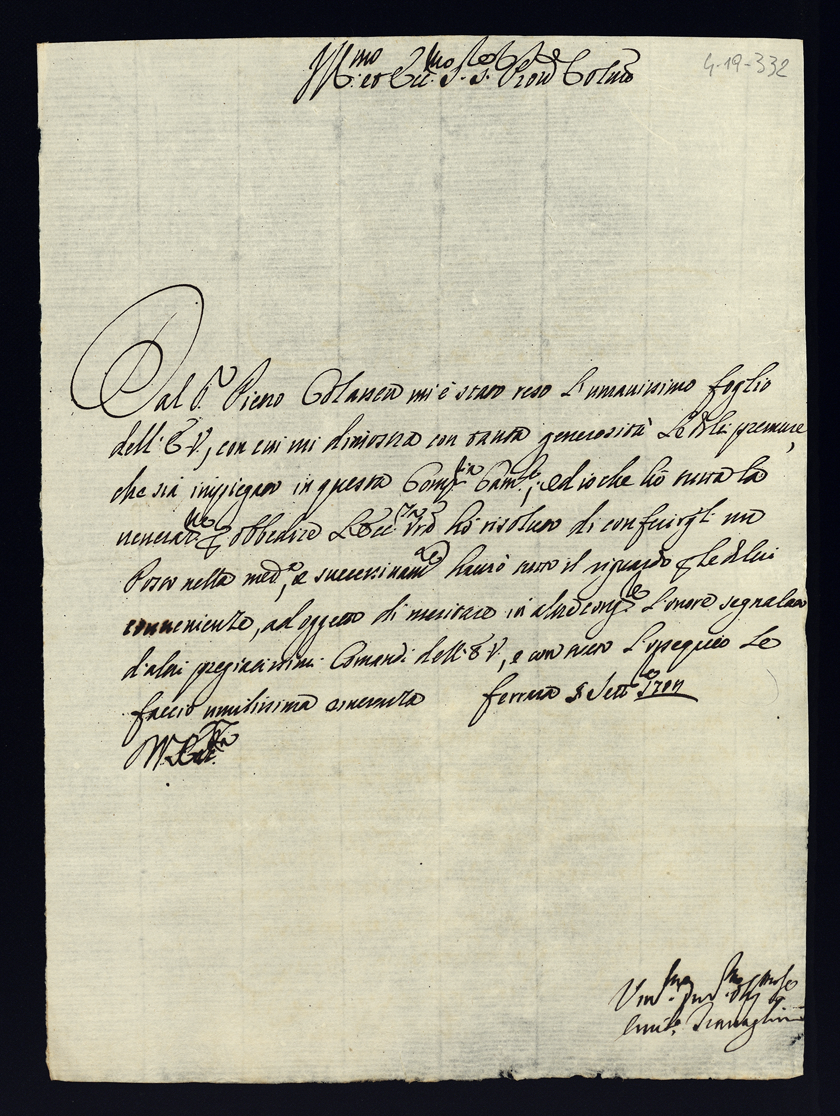 Ill.mo et Ecc.mo S. S. Pron Col.mo
4-19-332
Dal S.r Pietro mi è stato reso l'umanissimo foglio
dell'E V., con cui mi dimostra con tanta generosità le di lei premure,
che sia impiegato in questa Comp.ia ; ed io che hò tutta la
venerat.ne p obbedire l'Ecc.za Vra hò risoluto di conferirgl un
Posto nella med.a, e successivam.e haurò tutto il riguardo p le di lei
convenienze, ad oggetto di meritare in altre cong.e l'onore segnalato
d'altri pregiatissimi Comandi dell'E V., e con tutto l'ossequio Le
faccio umilissima riverenza Ferrara Sett.e
V. Ecc.za